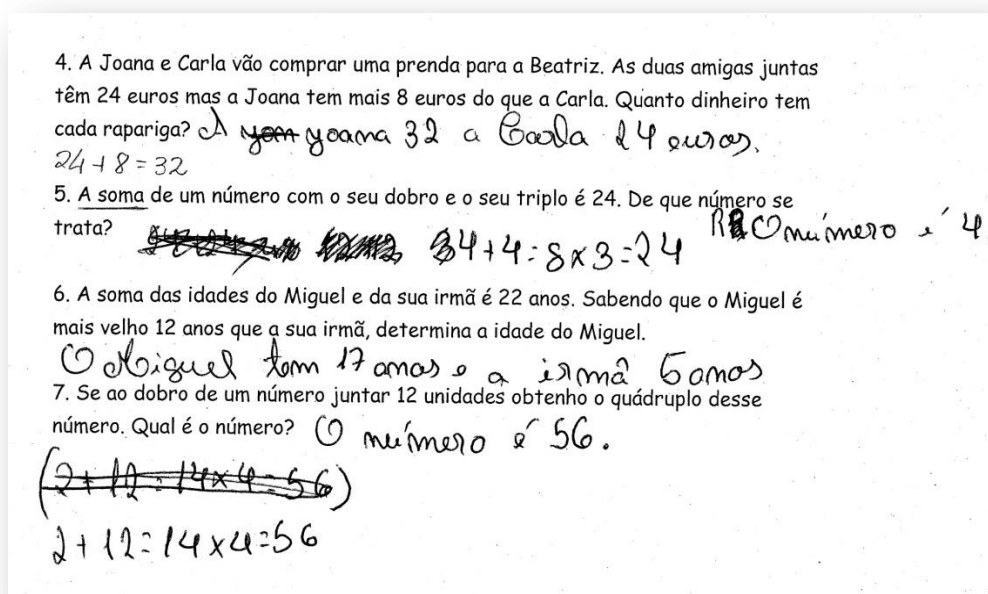 4. A Joana e Carla vão comprar uma prenda para a Beatriz. As duas amigas juntas
têm 24 euros mas a Joana tem mais 8 euros do que a Carla. Quanto dinheiro tem
cada rapariga? A yoana 32 a Carla 24 euros.
24+8=32
5. A soma de um número com o seu dobro e o seu triplo é 24. De que número se
trata? 4+4=8x3=24 R O número é 4
6. A soma das idades do Miguel e da sua irmã é 22 anos. Sabendo que o Miguel é
mais velho 12 anos que a sua irmã, determina a idade do Miguel.
O Miguel tem 17 anos e a irmã 5 anos
7. Se ao dobro de um número juntar 12 unidades obtenho o quádruplo desse
número. Qual é o número? O número é 56.
(2+12=14x4=56)
2+12=14x4=56